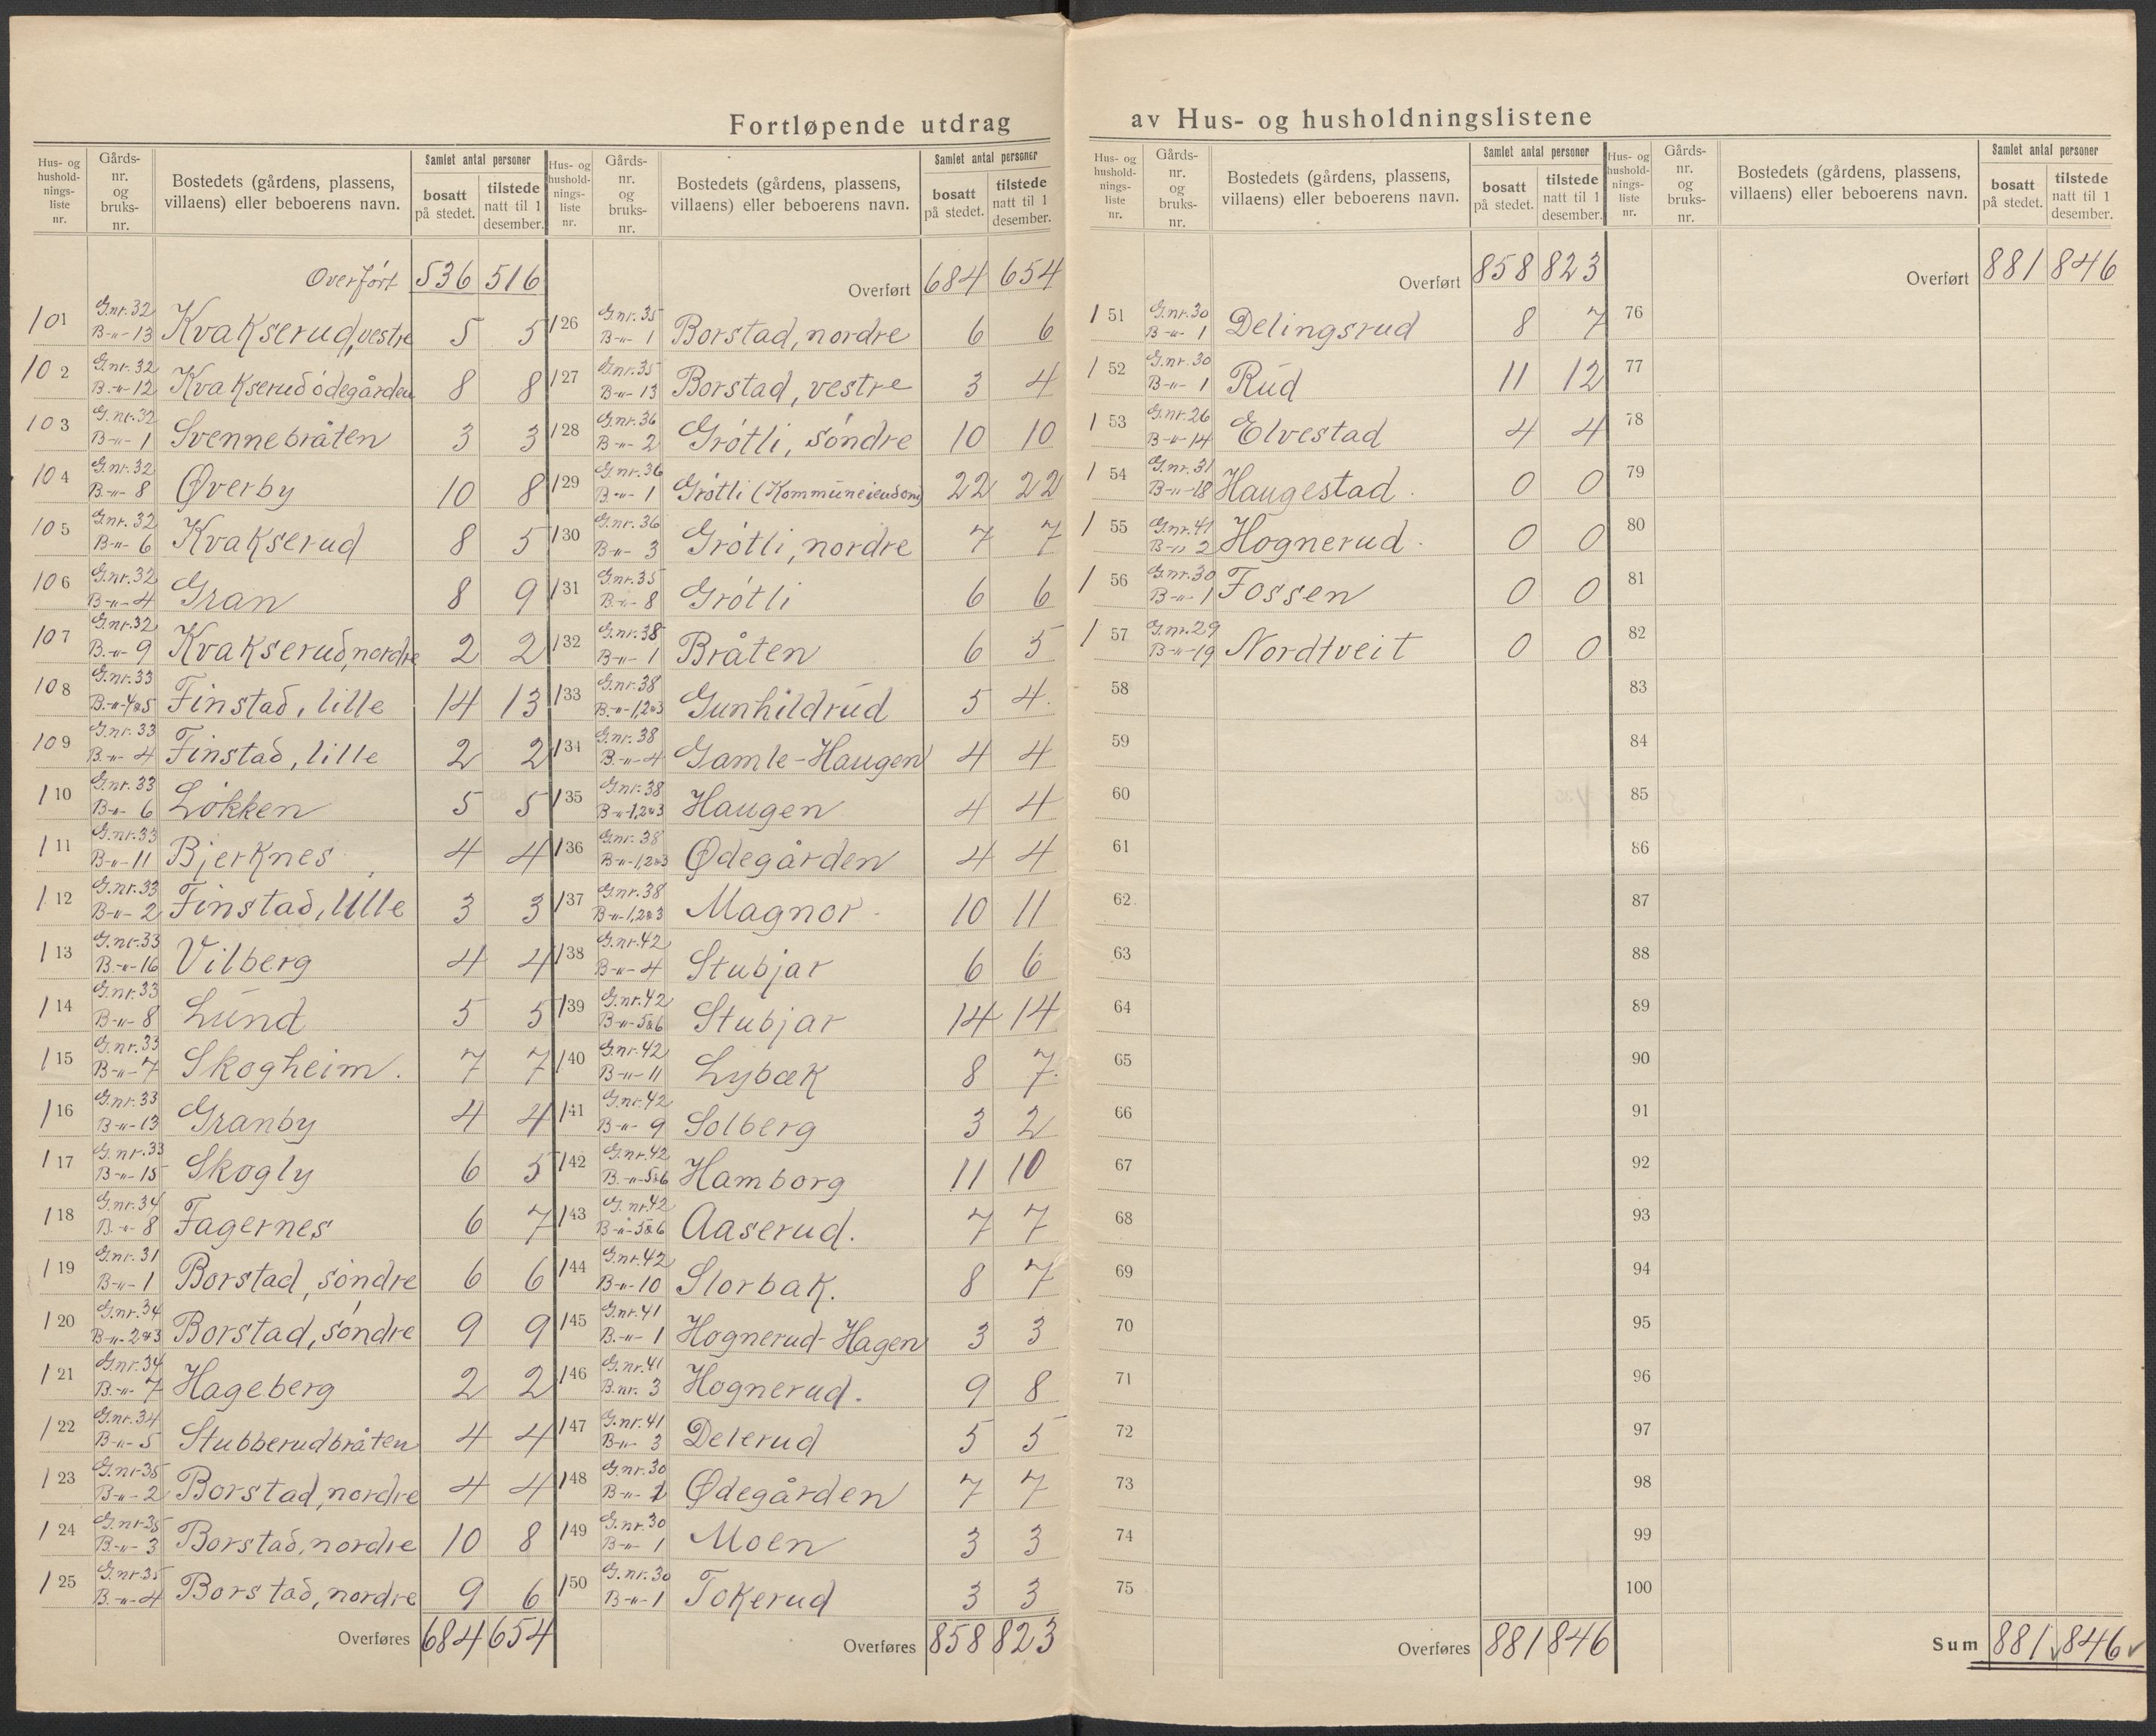 Fortløpende utdrag av Hus- og husholdningslistene
Hus- og husholdningsliste nr. | Gårdsnr. og bruksnr. | Bostedets (gårdens, plassens, villaens) eller beboerens navn. | Samlet antal personer: bosatt på stedet. | tilstede natt til 1 desember.
Overført 536 516
101 G.nr. 32 B-"- 13 Kvakserud, vestre 5 5
102 G.nr. 32 B.-"- 12 Kvakserudödegården 8 8
103 G.nr. 32 B-"- 1 Svennebråten 3 3
104 G.nr. 32 B.-"- 8 Øverby 10 8
105 G.nr. 32 B-"- 6 Kvakserud 8 5
106 G.nr. 32 B-"- 4 Gran 8 9
107 G.nr. 32 B.-"- 9 Kvakserud, nordre 2 2
108 G.nr. 33 B.-"- 4&5 Finstad, lille 14 13
109 G.nr. 33 B.-"- 4 Finstad, lille 2 2
110 G.nr. 33 B-"- 6 Lökken 5 5
111 G.nr. 33 B-"- 11 Bjerknes 4 4
112 G.nr. 33 B-"- 2 Finstad, lille 3 3
113 G.nr. 33 B.-"- 16 Vilberg 4 4
114 G.nr. 33 B-"- 8 Lund 5 5
115 G.nr. 33 B-"- 7 Skogheim. 7 7
116 G.nr. 33 B-"- 13 Granby 4 4
117 G.nr. 33 B-"- 15 Skogly 6 5
118 G.nr. 34 B.-"- 8 Fagernes 6 7
119 G.nr. 31 B-"- 1 Borstad, söndre 6 6
120 G.nr. 34 B-"- 2&3 Borstad, söndre 9 9
121 G.nr. 34 B.-"- 7 Hageberg 2 2
122 G.nr. 34 B-"- 5 Stubberudbråten 4 4
123 G.nr. 35 B-"- 2 Borstad, nordre 4 4
124 G.nr. 35 B.-"- 3 Borstad, nordre 10 8
125 G.nr. 35 B.-"- 4 Borstad, nordre 9 6
Overføres 684 654
Hus- og husholdningsliste nr. | Gårdsnr. og bruksnr. | Bostedets (gårdens, plassens, villaens) eller beboerens navn. | Samlet antal personer: bosatt på stedet. | tilstede natt til 1 desember.
Overført 684 654
126 G.nr. 35 B-"- 1 Borstad, nordre 6 6
127 G.nr. 35 B-"- 13 Borstad, vestre 3 4
128 G.nr. 36 B-"- 2 Grötli, söndre 10 10
129 G.nr. 36 B-"- 1 Grötli (Kommuneiendom) 22 22
130 G.nr. 36 B-"- 3 Grötli, nordre 7 7
131 G.nr. 35 B.-"- 8 Grötli 6 6
132 G.nr. 38 B-"- 1 Bråten 6 5
133 G.nr. 38 B.-"- 1,2&3 Gunhildrud 5 4
134 G.nr. 38 B.-"- 4 Gamle-Haugen 4 4
135 G.nr. 38 B-"- 1,2&3 Haugen 4 4
136 G.nr. 38 B-"- 1,2&3 Ødegården 4 4
137 G.nr. 38 B-"- 1,2&3 Magnor 10 11
138 G.nr. 42 B-"- 4 Stubjar 6 6
139 G.nr. 42 B-"- 5&6 Stubjar 14 14
140 G.nr. 42 B-"- 11 Lybæk 8 7
141 G.nr. 42 B-"- 9 Solberg 3 2
142 G.nr. 42 B.-"- 5&6 Hamborg 11 10
143 G.nr. 42 B-"- 5&6 Aaserud. 7 7
144 G.nr. 42 B-"- 10 Storbak. 8 7
145 G.nr. 41 B.-"- 1 Hognerud-Hagen 3 3
146 G.nr. 41 B.nr. 3 Hognerud. 9 8
147 G.nr. 41 B-"- 3 Delerud 5 5
148 G.nr. 30 B-"- 1 Ødegården 7 7
149 G.nr. 30 B-"- 1 Moen 3 3
150 G.nr. 30 B-"- 1 Tokerud 3 3
Overføres 858 823
Hus- og husholdningsliste nr. | Gårdsnr. og bruksnr. | Bostedets (gårdens, plassens, villaens) eller beboerens navn. | Samlet antal personer: bosatt på stedet. | tilstede natt til 1 desember.
Overført 858 823
151 G.nr. 30 B-"- 1 Delingsrud 8 7
152 G.nr. 30 B-"- 1 Rud 11 12
153 G.nr. 26 B-"- 14 Elvestad 4 4
154 G.nr. 31 B-"- 18 Haugestad 0 0
155 G.nr. 41 B-"- 2 Hognerud 0 0
156 G.nr. 30 B-"- 1 Fossen 0 0
157 G.nr. 29 B-"- 19 Nordtveit 0 0
58
59
60
61
62
63
64
65
66
67
68
69
70
71
72
73
74
75
Overføres 881 846
Hus- og husholdningsliste nr. | Gårdsnr. og bruksnr. | Bostedets (gårdens, plassens, villaens) eller beboerens navn. | Samlet antal personer: bosatt på stedet. | tilstede natt til 1 desember.
Overført 881 846
76
77
78
79
80
81
82
83
84
85
86
87
88
89
90
91
92
93
94
95
96
97
98
99
100
Sum 881 ✓ 846 ✓